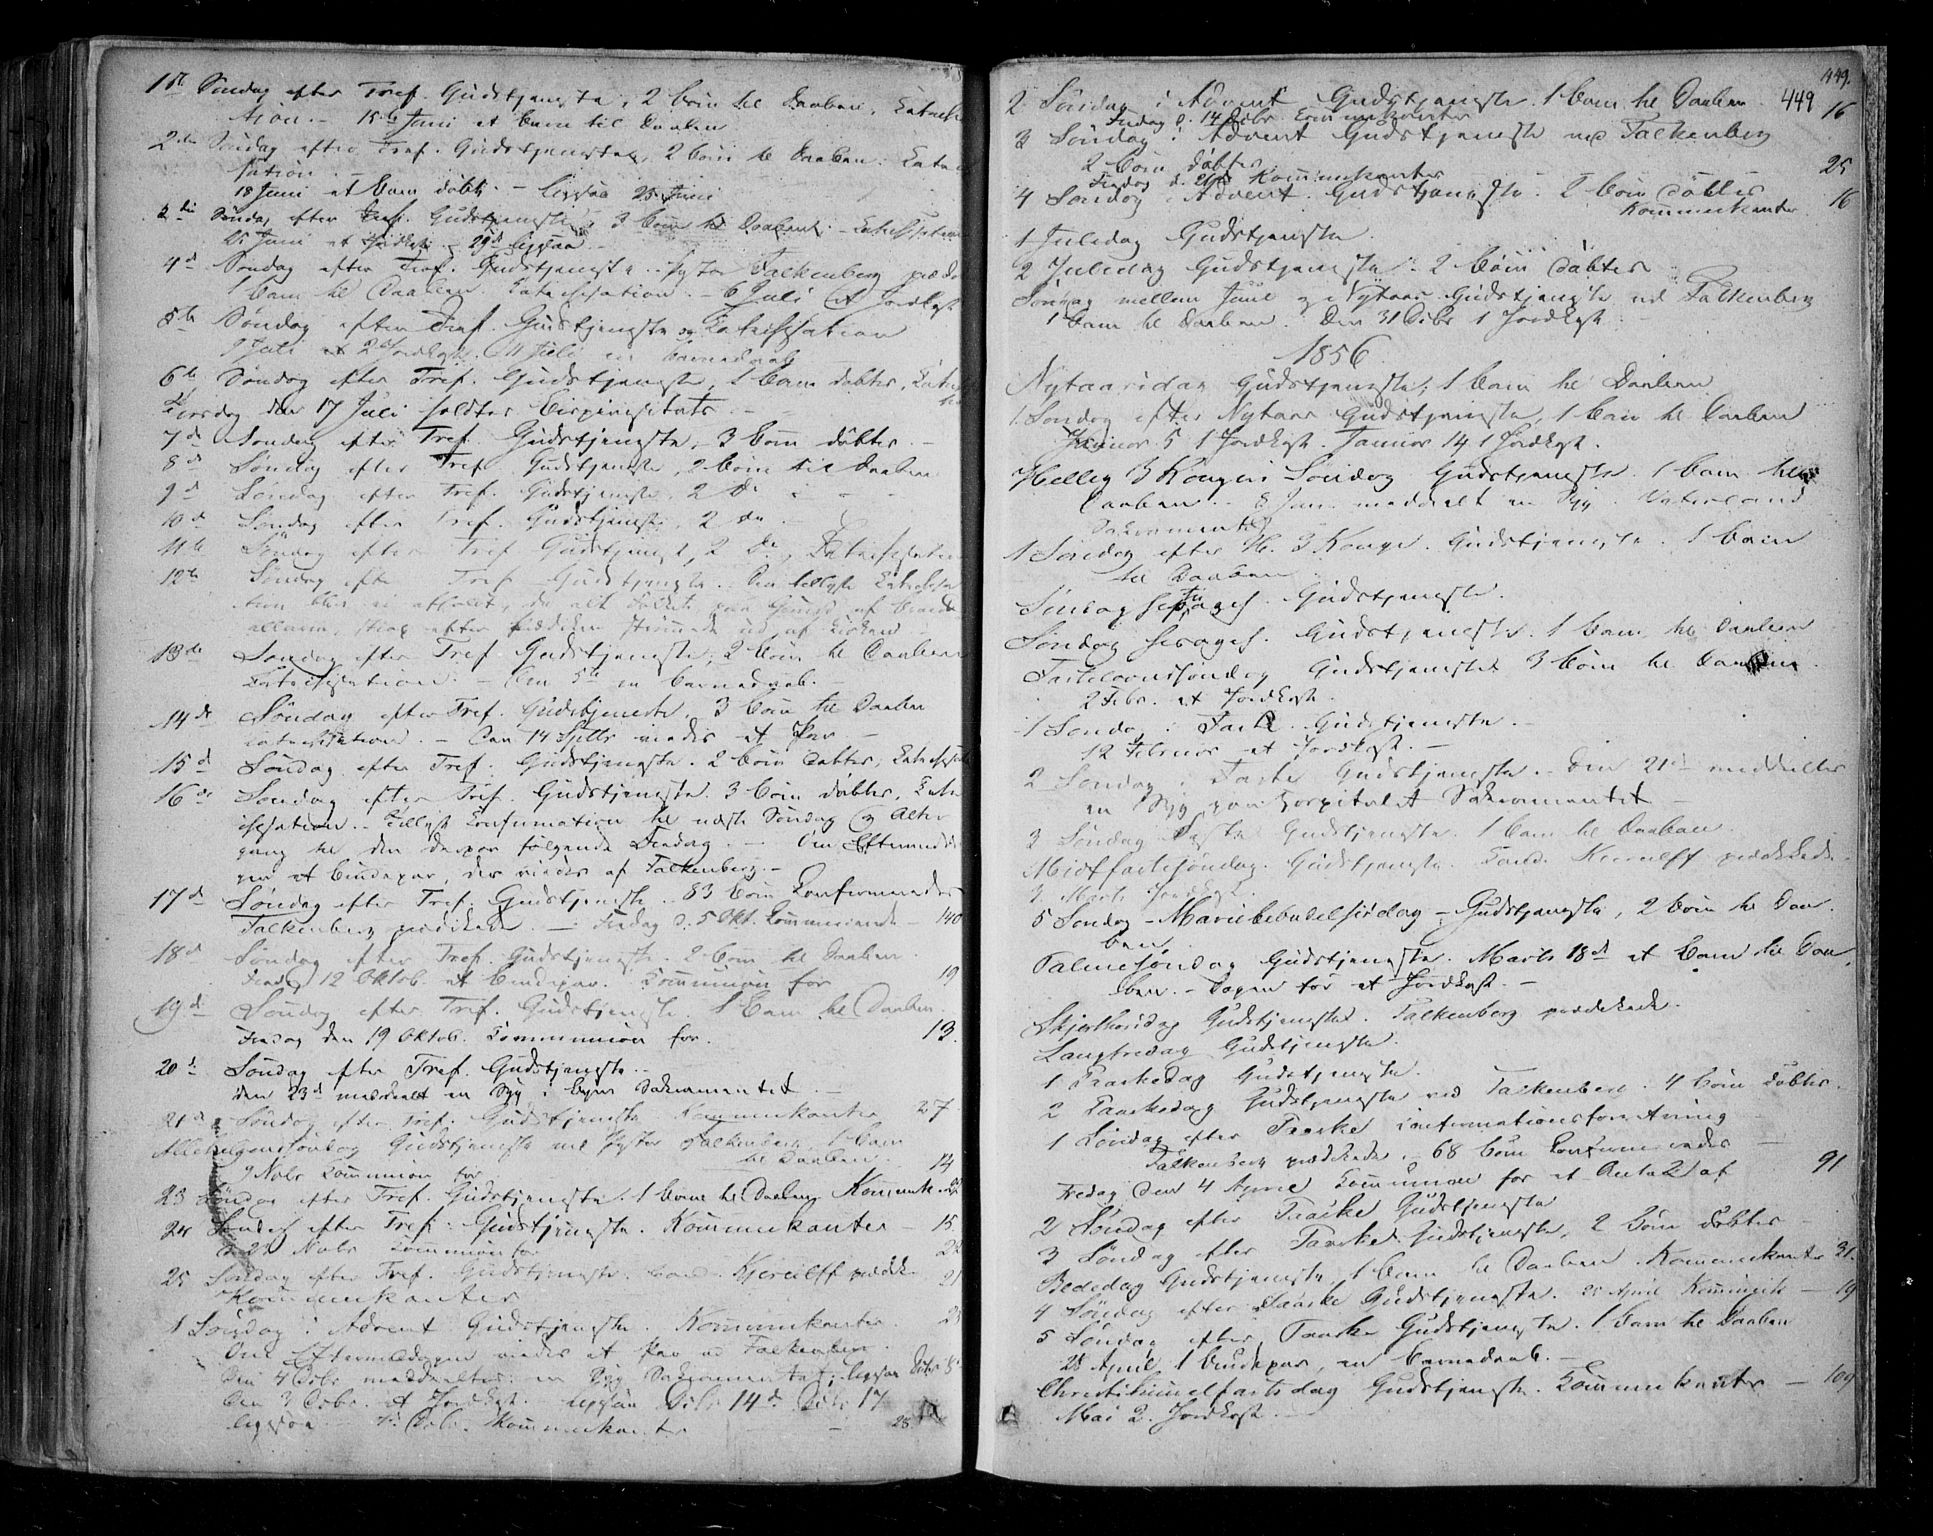 1ste Søndag efter Tref. Gudstjeneste, 2 børn til Daaben, Katechi-
sation. - 15de Juni et barn til Daaben
2den Søndag efter Tref. Gudstjeneste, 2 børn til Daaben. Kate-
sation. -
18 Juni et barn døbt. - ligesaa 23 Juni
3die Søndag efter Tref. Gudstjeneste, 3 børn til Daaben. - Katechisation
25 Juni et Jordkast - 29de ligesaa -
4de Søndag efter Tref. Gudstjeneste. Pastor Falkenberg præd.
1 barn til Daaben. Katechisation. - 6 Juli et Jordkast
5te Søndag efter Tref. Gudstjeneste og Katechisation
9 Juli 2 Jordkast. 11 Juli en barnedaab
6te Søndag efter Tref. Gudstjeneste, 1 barn døbtes, Kate-
Torsdag den 17 Juli holdtes
7de Søndag efter Tref. Gudstjeneste, 3 børn døbtes. -
8de Søndag efter Tref. Gudstjeneste, 2 børn til Daaben
9de Søndag efter Tref. Gudstjeneste, 2 do
10de Søndag efter Tref. Gudstjeneste, 2 do
11te Søndag efter Tref. Gudstjeneste, 2 do, Katechisation
12te Søndag efter Tref. Gudstjeneste. Den tillyste Katechisa-
tion blev ei afholdt, da alt Folket paa Grund af Brand-
allarm, strax efter Prædiken strømmede ud af Kirken
13de Søndag efter Tref. Gudstjeneste, 2 børn til Daaben
Katechisation. - den 5te en barnedaab. -
14de Søndag efter Tref. Gudstjeneste, 3 børn til Daaben
Katechisation. - Den 14 Septbr viedes et Par. -
15de Søndag efter Tref. Gudstjeneste. 2 børn døbtes, Katechisa-
16de Søndag efter Tref. Gudstjeneste. 3 børn døbtes, Kate-
chisation. Tillyst Confirmation til næste Søndag og Alter-
gang til den derpaa følgende Fredag. - Om Eftermidda-
gen et Brudepar, der viedes af Falkenberg. -
17de Søndag efter Tref. Gudstjeneste. 83 børn Konfirmeredes
Falkenberg prædikede. - Fredag d. 5 Okt. Kommunicerede - 140
18de Søndag efter Tref. Gudstjeneste. 2 børn til Daaben.
Fredag 12 Oktob. et Brudepar. Kommunion for 19
19de Søndag efter Tref. Gudstjeneste. 1 barn til Daaben.
Fredag den 19 Oktob. Kommunion for. 13.
20de Søndag efter Tref. Gudstjeneste. -
Den 23de meddeelt en Syg i Byen Sakramentet. -
21de Søndag efter Tref. Gudstjeneste Kommunikanter 27
Allehelgenssøndag Gudstjeneste ved Pastor Falkenberg 1 barn
til Daaben.
9 Novbr Kommunion for 14
23 Søndag efter Tref. Gudstjeneste. 1 barn til Daaben, Kommunik.
24 Søndag efter Tref. Gudstjeneste. Kommunikanter - 15
Novbr Kommunion for
25 Søndag efter Tref. Gudstjeneste. Kand. Kjerulff prædik. 21
Kommunikanter
1 Søndag i Advent Gudstjeneste. Kommunikanter 23
Om Eftermiddagen viedes et Par ved Falkenberg.
Den 4 Decbr meddeeltes en Syg Sakramentet, ligesaa Decbr 8
Den 3 Decbr. et Jordkast. - ligesaa Decbr 14de Decbr 17
ligesaa - Decbr. Kommunikanter - 28
449.
449
2 Søndag i Advent Gudstjeneste. 1 barn til Daaben 16
Fredag d. 14 Decbr Kommunikanter
3 Søndag i Advent Gudstjeneste ved Falkenberg
2 børn døbtes 25
Fredag d. 21de Kommunikanter
4 Søndag i Advent. Gudstjeneste 2 børn døbtes
Kommunikanter 16
1 Juledag Gudstjeneste
2 Juledag Gudstjeneste. 2 børn døbtes
Søndag mellem Juul og Nytaar Gudstjeneste ved Falkenberg
1 barn til Daaben. Den 31 Decbr 1 Jordkast
1856
Nytaarsdag Gudstjeneste, 1 barn til Daaben
1. Søndag efter Nytaar Gudstjeneste, 1 barn til Daaben
Januar 5 1 Jordkast. Januar 14 1 Jordkast.
Hellig 3 Kongers Søndag Gudstjeneste 1 barn til
Daaben. - 8 Jan. meddeelt en Syg i Vaterland
Sakramentet
1 Søndag efter H. 3 Konger. Gudstjeneste. 1 barn
til Daaben
Søndag Septuages. Gudstjeneste.
Søndag Sexages. Gudstjeneste. 1 barn til Daaben
Fastelavnssøndag Gudstjeneste 3 børn til Daaben.
2 Febr. et Jordkast.
1 Søndag i Faste Gudstjeneste. -
12 Februar et Jordkast. -
2 Søndag i Faste Gudstjeneste. - Den 21de meddeeltes
en Syg paa Hospitalet Sakramentet -
3 Søndag i Faste Gudstjeneste. 1 barn til Daaben.
Midfastesøndag. Gudstjeneste. Kand. Kierulff prædikede.
3 Marts Jordkast.
5 Søndag - Mariebebudelsesdag - Gudstjeneste, 2 børn til Daa-
ben
Palmesøndag Gudstjeneste. Marts 18de et barn til Daa-
ben. - Dagen før et Jordkast. -
Skjærthorsdag Gudstjeneste. Falkenberg prædikede.
Langfredag Gudstjeneste.
1 Paaskedag Gudstjeneste.
2 Paaskedag Gudstjeneste ved Falkenberg. 4 børn døbtes.
1 Søndag efter Paaske Confirmationsforretning
Falkenberg prædikede. - 68 børn Konfirmeredes -
Fredag den 4 April Kommunion for et Antal af 91
2 Søndag efter Paaske Gudstjeneste
3 Søndag efter Paaske Gudstjeneste, 2 børn døbtes -
Bededag Gudstjeneste, 1 barn til Daaben. Kommunikanter 31.
4 Søndag efter Paaske Gudstjeneste. 25 April Kommunik - 19
5 Søndag efter Paaske Gudstjeneste. 1 barn til Daaben
28 April 1 Brudepar, en barnedaab. -
Christi Himmelfartsdag Gudstjeneste. Kommunikanter - 109
Mai 2. Jordkast. -